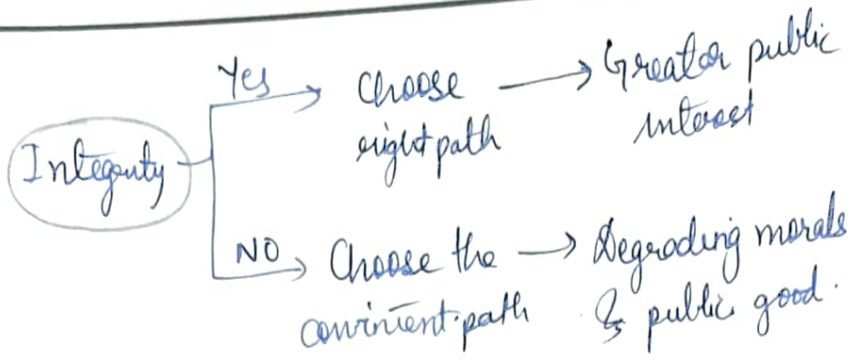 Integrity
Yes → Choose
right path → Greater public
interest
NO → Choose the
convinient path → Degrading morals
& public good.